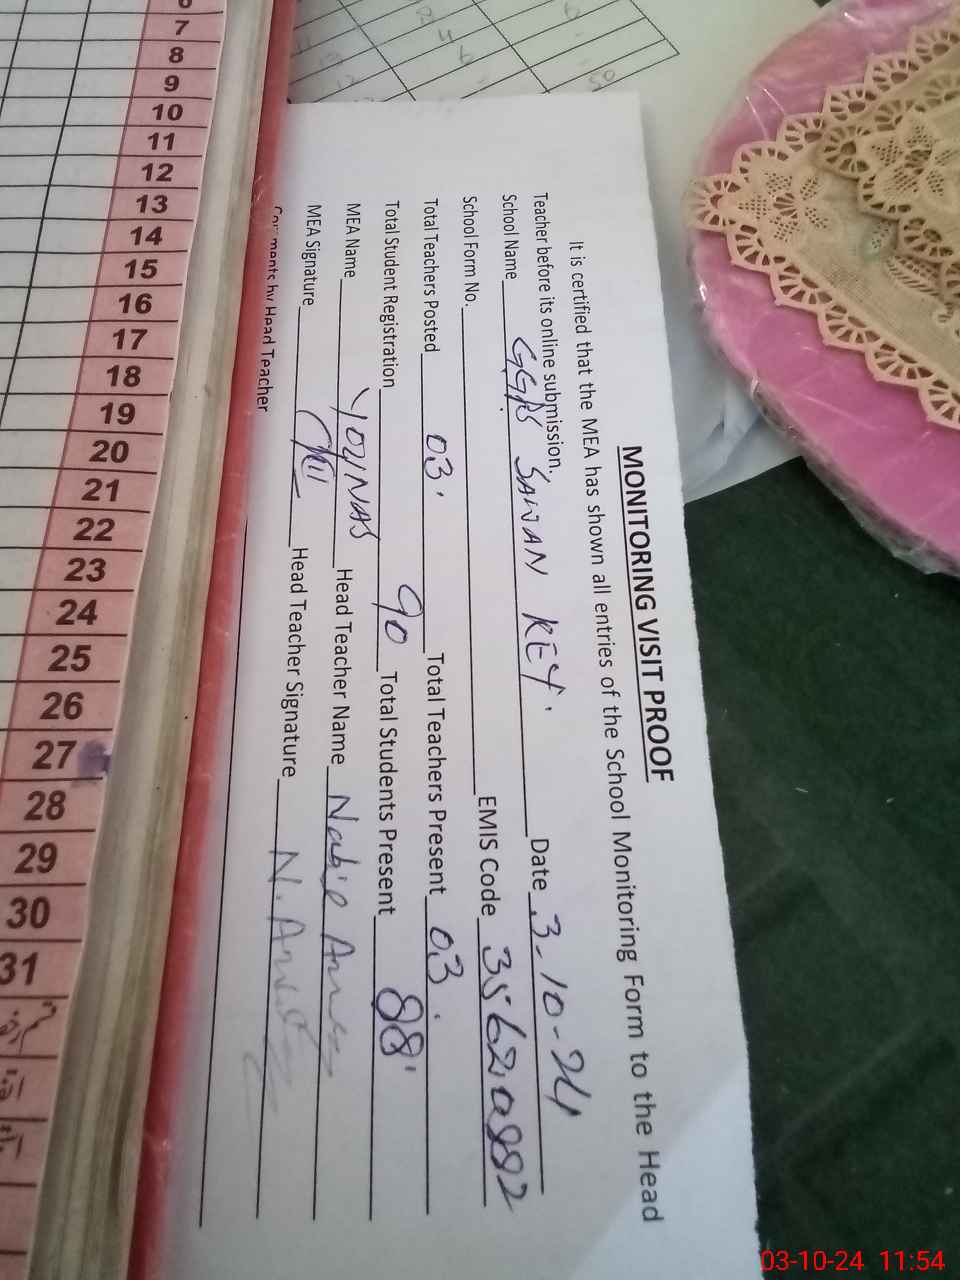 MONITORING VISIT PROOF
It is certified that the MEA has shown all entries of the School Monitoring Form to the Head
Teacher before its online submission.
School Name SAWAN KEY. Date 3-10-24
School Form No. EMIS Code
Total Teachers Posted 03. Total Teachers Present 03.
Total Student Registration 90 Total Students Present 88
MEA Name YOUNAS Head Teacher Name
MEA Signature Head Teacher Signature
Comments by Head Teacher
7
8
9
10
11
12
13
14
15
16
17
18
19
20
21
22
23
24
25
26
27
28
29
30
31
03-10-24 11:54